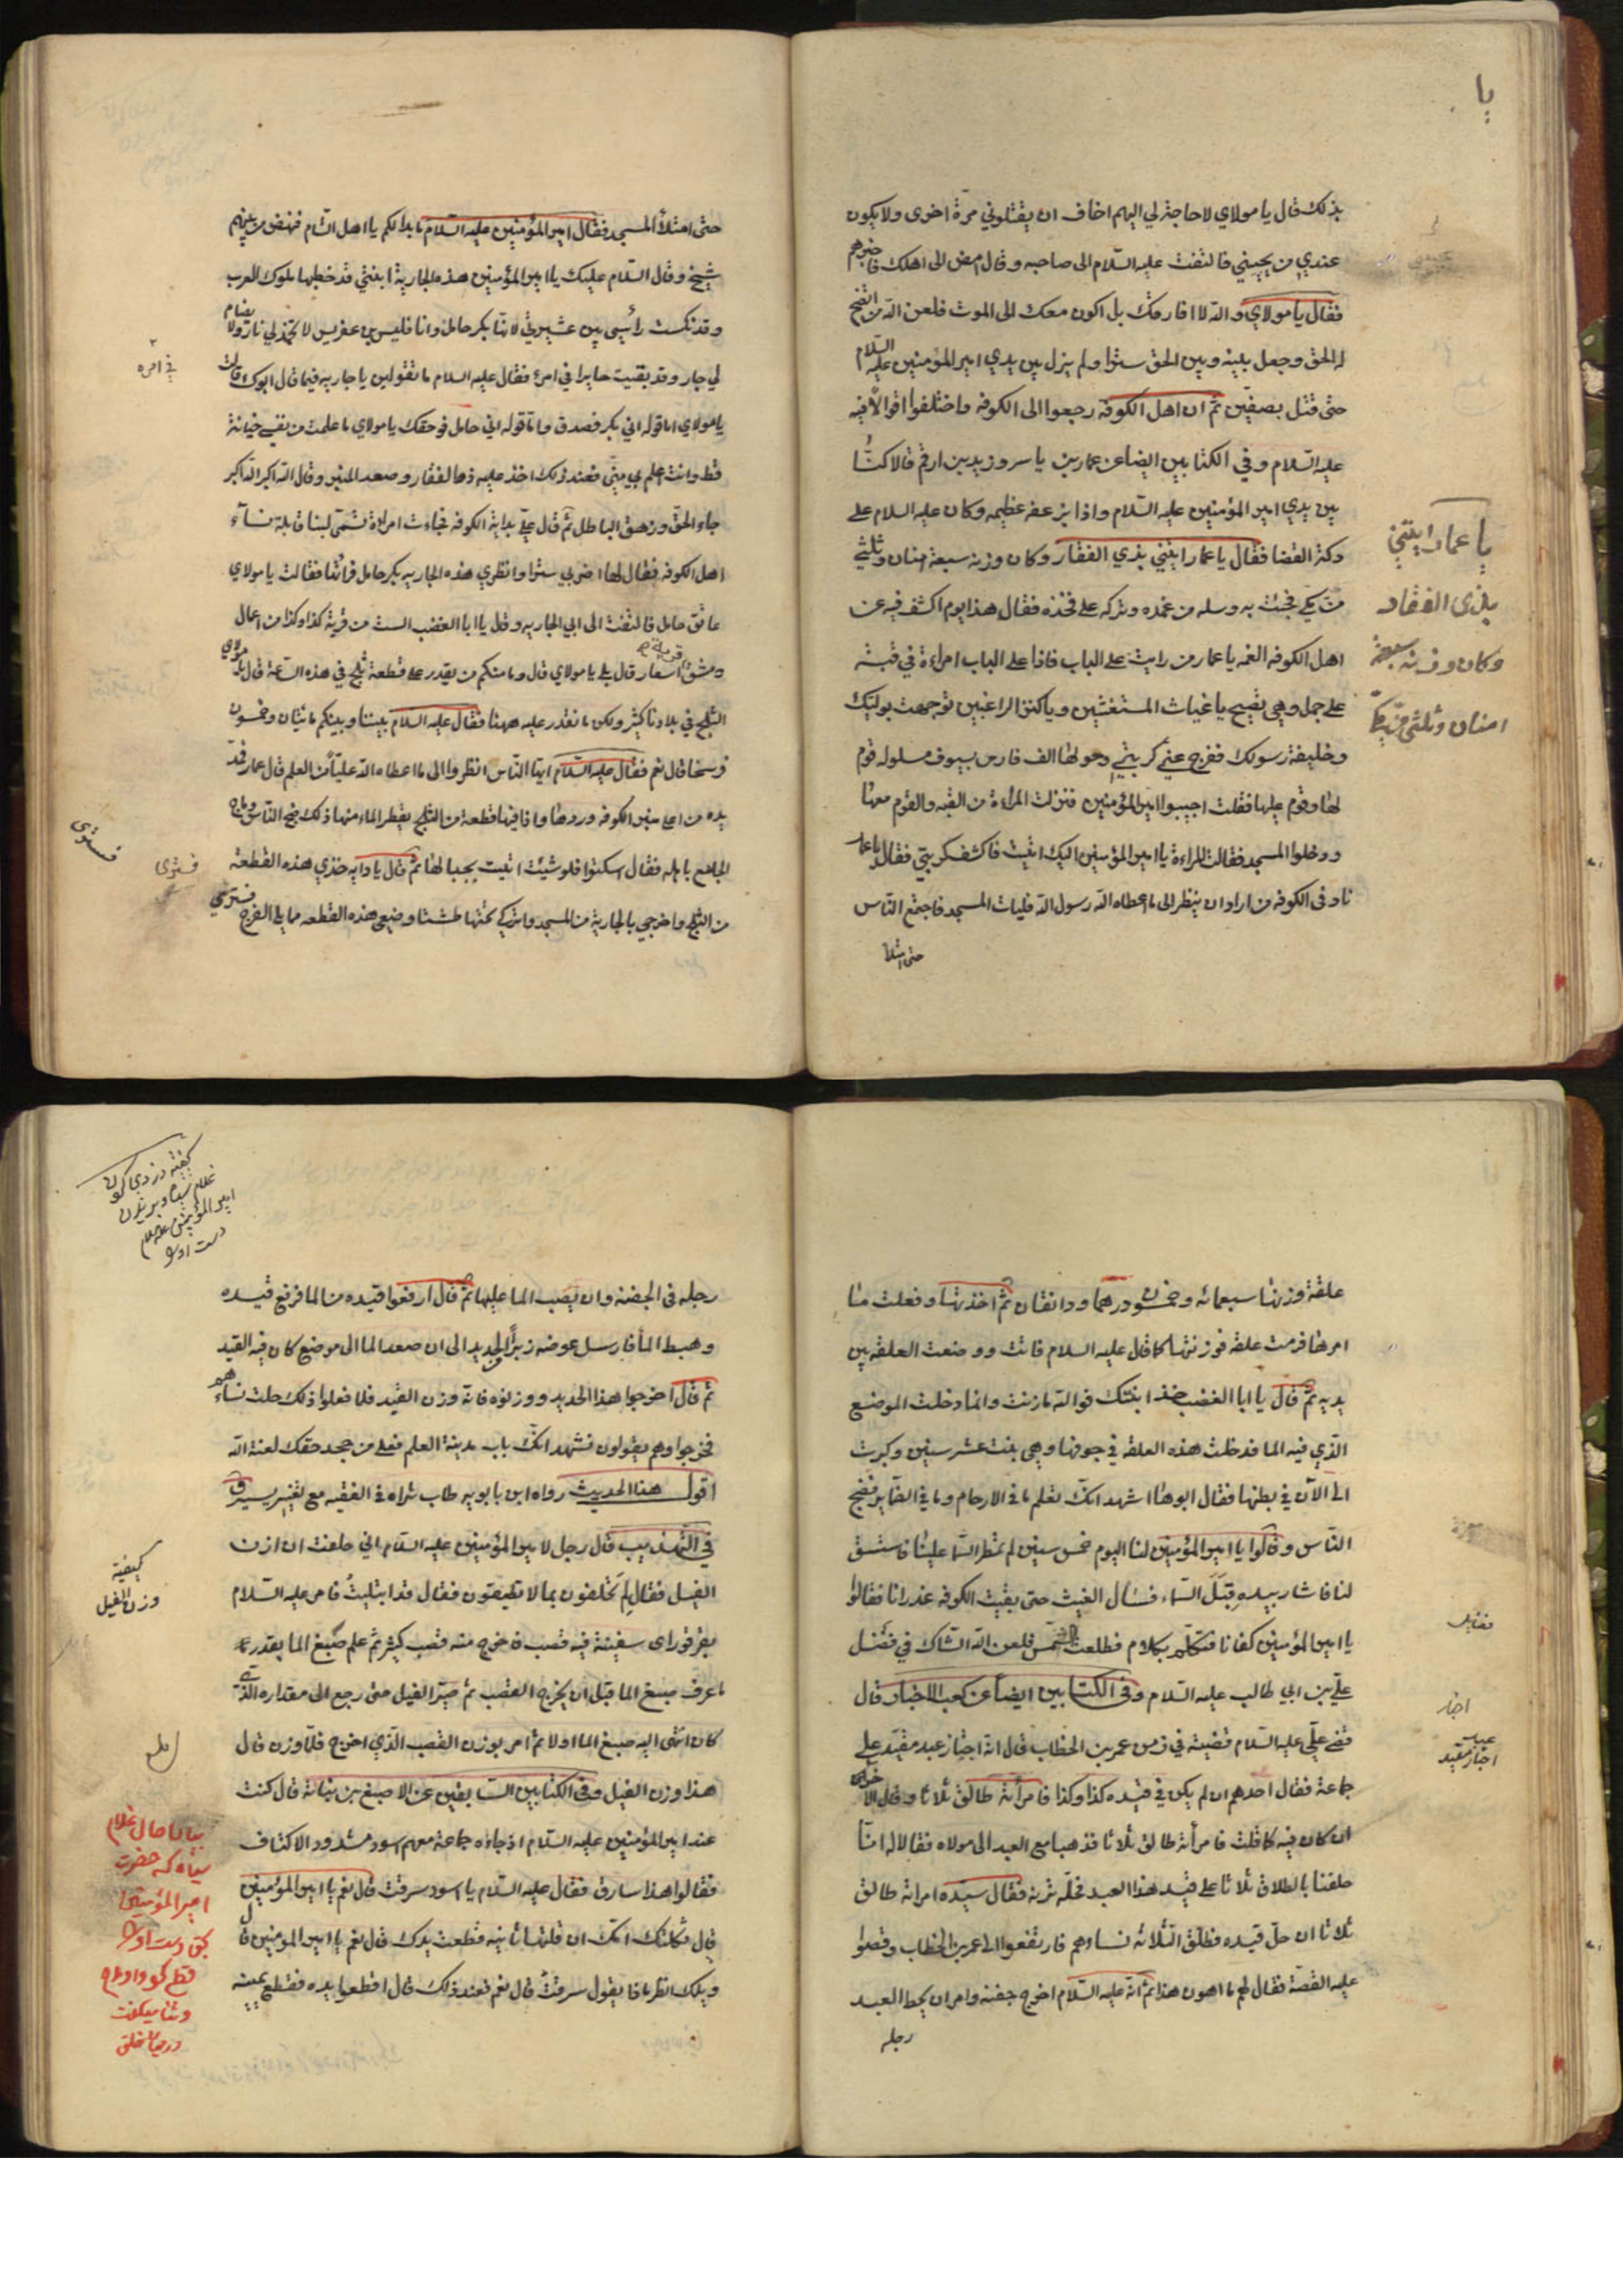 يا
بذلك قال يا مولاي لا حاجة لي اليهم اخاف ان يقتلوني مرة اخرى ولا يكون
عندي من يحييني فالتفت عليه السلام الى صاحبه وقال امض الى اهلك فاخبرهم
فقال يا مولاي والله لا افارقك بل اكون معك الى الموت فلعن الله من اتضح
له الحق وجعل بينه وبين الحق سترا ولم يزل بين يدي امير المؤمنين عليه السلام
حتى قتل بصفين ثم ان اهل الكوفه رجعوا الى الكوفه واختلفوا اقوالا فيه
عليه السلام وفي الكتابين ايضا عن عمار بن ياسر وزيد بن ارقم قالا كنا
بين يدي امير المؤمنين عليه السلام واذا بزعقه عظيمه وكان عليه السلام على
دكة القضا فقال يا عمار ايتني بذي الفقار وكان وزنه سبعة امنان وثلثي
من مكي فجئت به وسله من غمده وتركه على فخذه فقال هذا يوم اكشف فيه عن
اهل الكوفه الغمه يا عمار من رايت على الباب فاذا على الباب امراءة في قبة
على جمل وهي تصيح يا غياث المستغثين ويا كنز الراغبين توجهت بوليك
وخليفة رسولك ففرج عني كربتي وحولها الف فارس بسيوف مسلوله قوم
لها وقوم عليها فقلت اجيبوا امير المؤمنين فنزلت المراءة من القبه والقوم معها
ودخلوا المسجد فقالت المراءة يا امير المؤمنين اليك اتيت فاكشف كربتي فقال يا عمار
ناد في الكوفه من اراد ان ينظر الى ما اعطاه الله رسول الله فليات المسجد فاجتمع الناس
حتى امتلأ
يا عمار ايتني
بذي الفقار
وكان وزنه سبعة
امنان وثلثي من مكي
حتى امتلأ المسجد فقال امير المؤمنين عليه السلام ما بدا لكم يا اهل الشام فنهض من بينهم
شيخ وقال السلام عليك يا امير المؤمنين هذه الجارية ابنتي قد خطبها ملوك العرب
وقد نكست رأسي بين عشيرتي لانها بكر حامل وانا فليس بن عفريس لا تخمد لي نار ولا يضام
لي جار وقد بقيت حايرا في امرئ فقال عليه السلام ما تقولين يا جاريه فيما قال ابوك قالت
يا مولاي اما قوله اني بكر فصدق واما قوله اني حامل فوحقك يا مولاي ما علمت من نفسي خيانة
قط وانت اعلم بي مني فعند ذلك اخذ عليه ذو الفقار وصعد المنبر وقال الله اكبر الله اكبر
جاء الحق وزهق الباطل ثم قال علي بداية الكوفه فجاءت امراءة تسمى لبنا قابلة نساء
اهل الكوفه فقال لها اضربي سترا وانظري هذه الجاريه بكر حامل فرأتها فقالت يا مولاي
عاتق حامل فالتفت الى ابي الجاريه وقال يا ابا الغضب الست من قرية كذا وكذا من اعمال
دمشق اسعار قال بلى يا مولاي قال وما منكم من يقدر على قطعة ثلج في هذه الساعة قال يا مولاي
الثلج في بلادنا كثير ولكن ما نقدر عليه ههنا فقال عليه السلام بيننا وبينكم مائتان وخمسون
فرسخا قال نعم فقال عليه السلام ايها الناس انظروا الى ما اعطاه الله عليا من العلم قال عمار فمد
يده من اعلا منبر الكوفه وردها واذا فيها قطعة من الثلج يقطر الماء منها ذلك ضج الناس وماج
الجامع باهله فقال اسكتوا فلو شئت اتيت بجبالها ثم قال يا دايه خذي هذه القطعة
من الثلج واخرجي بالجارية من المسجد واتركي تحتها طشتا وضعي هذه القطعه مما يلي الفرج فسترى
في امره
فسترى
فسترى
علقة وزنها سبعمائه وخمسون درهما ودانقان ثم اخذتها وفعلت ما
امرها فرمت علقه فوزنتها كما قال عليه السلام فاتت ووضعت العلقه بين
يديه ثم قال يا ابا الغضب خذ ابنتك فوالله ما زنت وانما دخلت الموضع
الذي فيه الما فدخلت هذه العلقه في جوفها وهي بنت عشر سنين وكبرت
الى الآن في بطنها فقال ابوها اشهد انك تعلم ما في الارحام وما في الضماير فضج
الناس وقالوا يا امير المؤمنين لنا اليوم خمس سنين لم تمطر السما علينا فاستسق
لنا فاشار بيده قبل السماء فسال الغيث حتى بقيت الكوفه غدرانا فقالوا
يا امير المؤمنين كفانا فتكلم بكلام فطلعت الشمس فلعن الله الشاك في فضل
علي بن ابي طالب عليه السلام وفي الكتابين ايضا عن كعب الاخبار قال
قضى علي عليه السلام قضية في زمن عمر بن الخطاب قال انه اجتاز عبد مقيد على
جماعة فقال احدهم ان لم يكن في قيده كذا وكذا فامرأته طالق ثلاثا وقال الاخر
ان كان فيه كما قلت فامرأته طالق ثلاثا فذهبا مع العبد الى مولاه فقالا له انا
حلفنا بالطلاق ثلاثا على قيد هذا العبد فحله نزنه فقال سيده امراته طالق
ثلاثا ان حل قيده فطلق الثلاثة نساءهم فارتفعوا الى عمر بن الخطاب وقصوا
عليه القصة فقال لهم ما اهون هذا ثم انه عليه السلام اخرج جفنه وامر ان يحط العبد
رجله
اجتاز
عبد
اجتاز مقيد
رجله في الجفنه وان يصب الما عليها ثم قال ارفعوا قيده من الما فرفع قيده
وهبط الما فارسل عوضه زبرا من الحديد الى ان صعد الما الى موضع كان فيه القيد
ثم قال اخرجوا هذا الحديد ووزنوه فانه وزن القيد فلما فعلوا ذلك حلت نساءهم
فخرجوا وهم يقولون نشهد انك باب مدينة العلم فعلى من جحد حقك لعنة الله
اقول هذا الحديث رواه ابن بابويه طاب ثراه في الفقيه مع تغيير يسير
في التهذيب قال رجل لامير المؤمنين عليه السلام اني حلفت ان ازن
الفيل فقال لم تحلفون بما لا تطيقون فقال قد ابتليت فامر عليه السلام
بقرقور اى سفينة فيه قصب فاخرج منه قصب كثير ثم علم صبغ الما بقدر ما
ما عرف صبغ الما قبل ان يخرج القصب ثم صير الفيل حتى رجع الى مقداره الذي
كان انتهى اليه صبغ الما اولا ثم امر بوزن القصب الذي اخرج فلما وزن قال
هذا وزن الفيل وفي الكتابين السابقين عن الاصبغ بن نباتة قال كنت
عند امير المؤمنين عليه السلام اذ جاءه جماعة معهم اسود مشدود الاكتاف
فقالوا هذا سارق فقال عليه السلام يا اسود سرقت قال نعم يا امير المؤمنين
قال ثكلتك امك ان قلتها ثانيه قطعت يدك قال نعم يا امير المؤمنين قال
ويلك انظر ماذا يقول سرقت قال نعم فعند ذلك قال اقطعوا يده فقطع يمينه
غلام سياه
امير المؤمنين
كيفية
وزن الفيل
بيان حال غلام
سياه كه حضرت
امير المؤمنين
دست او را
قطع كرد و او مدح
وثنا ميكفت
درميان خلق